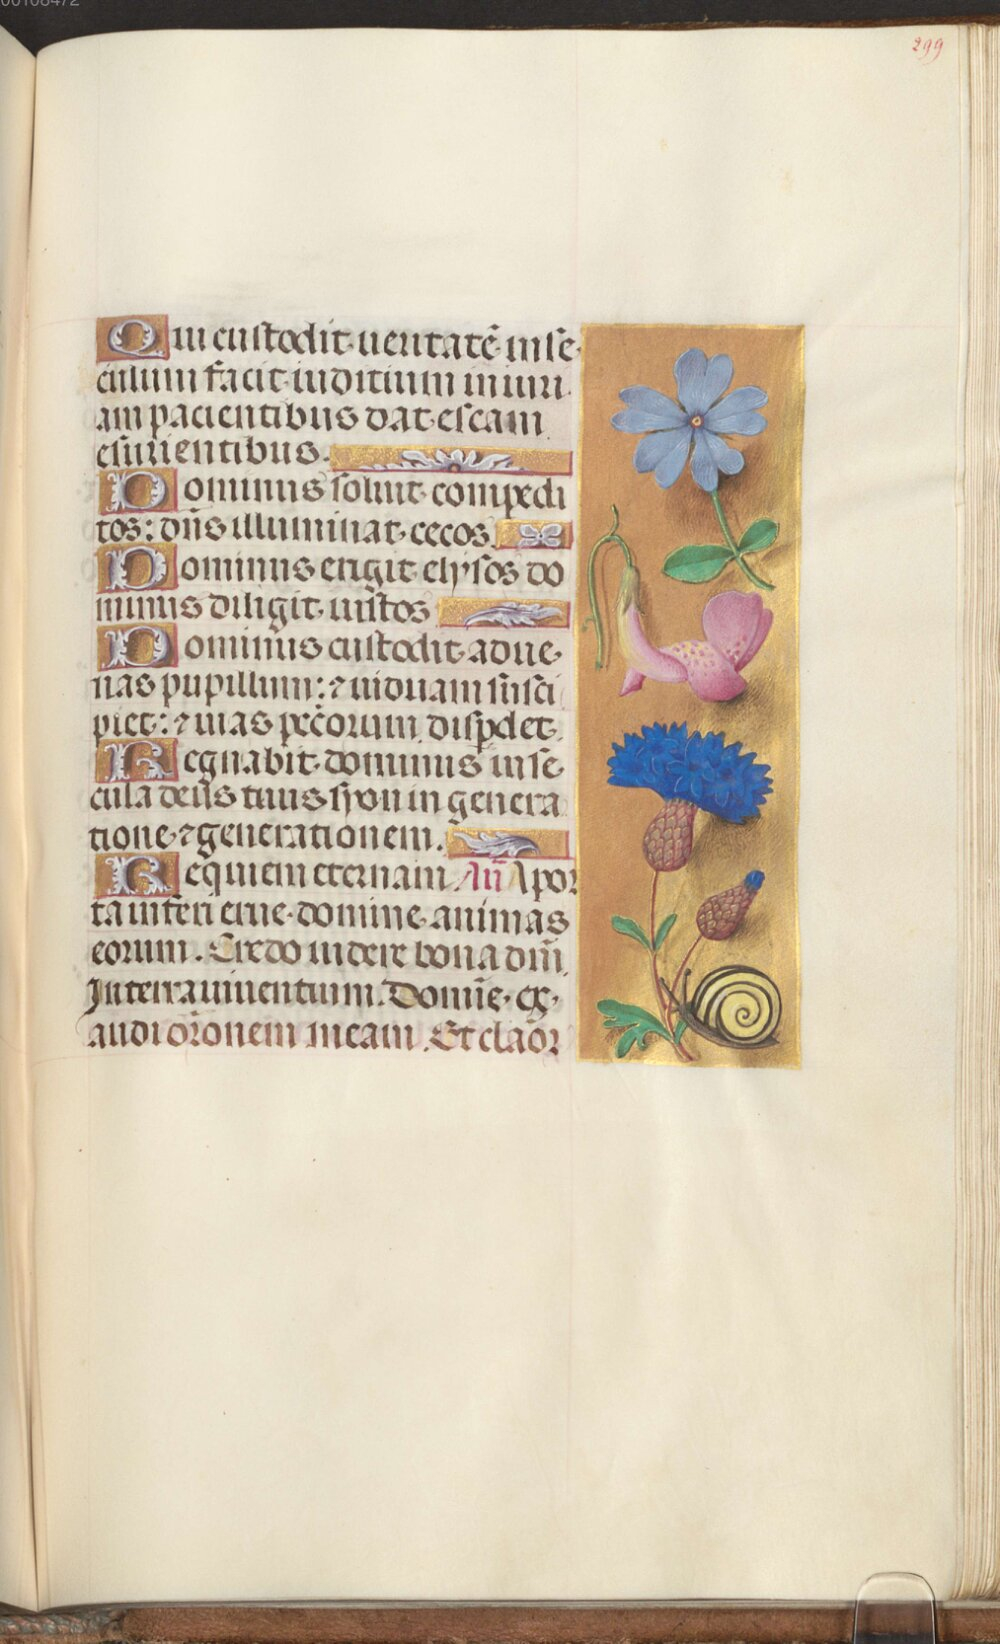 00108472
299
Qui custodit ueritatē in se
culum facit iuditium iniuri
am pacientibus dat escam
esurientibus.
Dominus soluit compedi
tos: dn̄s illuminat cecos.
Dominus erigit elysos do
minus diligit iustos
Dominus custodit adue
nas pupillum: ⁊ uiduam susci
piet: ⁊ uias pecc̄orum disp̱det.
Regnabit dominus in se
cula deus tuus syon in genera
tione ⁊ generationem.
Requiem eternam An̄ A por
ta inferi erue domine animas
eorum. Credo uidere bona dn̄i
In terra uiuentium. Domīe ex
audi or̄onem meam. Et clāor